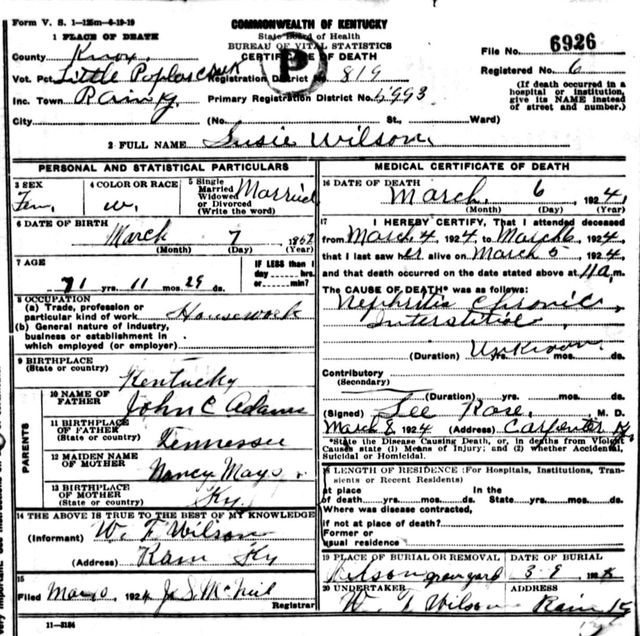 Form V. S. 1—125m—6-19-19
COMMONWEALTH OF KENTUCKY
State Board of Health
BUREAU OF VITAL STATISTICS
CERTIFICATE OF DEATH
P
1 PLACE OF DEATH
County Knox
Vot. Pct. Little Poplar Creek Registration District No. 819
Inc. Town Rain Ky. Primary Registration District No. 5993
City (No. St., Ward)
File No. 6926
Registered No. 6
(If death occurred in a hospital or institution, give its NAME instead of street and number.)
2 FULL NAME Susie Wilson
PERSONAL AND STATISTICAL PARTICULARS
3 SEX Fem.
4 COLOR OR RACE W.
5 Single Married Widowed or Divorced (Write the word) Married
6 DATE OF BIRTH March 7 1852
(Month) (Day) (Year)
7 AGE 71 yrs. 11 mos. 29 ds.
IF LESS than 1 day----hrs. or----min?
8 OCCUPATION
(a) Trade, profession or particular kind of work Housework
(b) General nature of industry, business or establishment in which employed (or employer)
9 BIRTHPLACE
(State or country) Kentucky
PARENTS
10 NAME OF FATHER John C Adams
11 BIRTHPLACE OF FATHER (State or country) Tennessee
12 MAIDEN NAME OF MOTHER Nancy Mays
13 BIRTHPLACE OF MOTHER (State or country) Ky.
14 THE ABOVE IS TRUE TO THE BEST OF MY KNOWLEDGE
(Informant) W. F. Wilson
(Address) Rain Ky
15
Filed 1924 J. S. McNeil
Registrar
11—3184
MEDICAL CERTIFICATE OF DEATH
16 DATE OF DEATH March 6 1924
(Month) (Day) (Year)
17 I HEREBY CERTIFY, That I attended deceased
from March 4, 1924, to March 6, 1924,
that I last saw her alive on March 5 1924
and that death occurred on the date stated above at 11 a.m.
The CAUSE OF DEATH* was as follows:
Nephritis Chronic,
Interstitial,
(Duration) Unknown yrs. mos. ds.
Contributory
(Secondary)
(Duration) yrs. mos. ds.
(Signed) Lee Rose, M. D.
March 8, 1924 (Address) Carpenter Ky
*State the Disease Causing Death, or, in deaths from Violent Causes state (1) Means of Injury; and (2) whether Accidental, Suicidal or Homicidal.
18 LENGTH OF RESIDENCE (For Hospitals, Institutions, Transients or Recent Residents)
At place of death yrs. mos. ds. In the State yrs. mos. ds.
Where was disease contracted,
if not at place of death?
Former or usual residence
19 PLACE OF BURIAL OR REMOVAL Wilson graveyard
DATE OF BURIAL 192
20 UNDERTAKER Wilson
ADDRESS Rain Ky